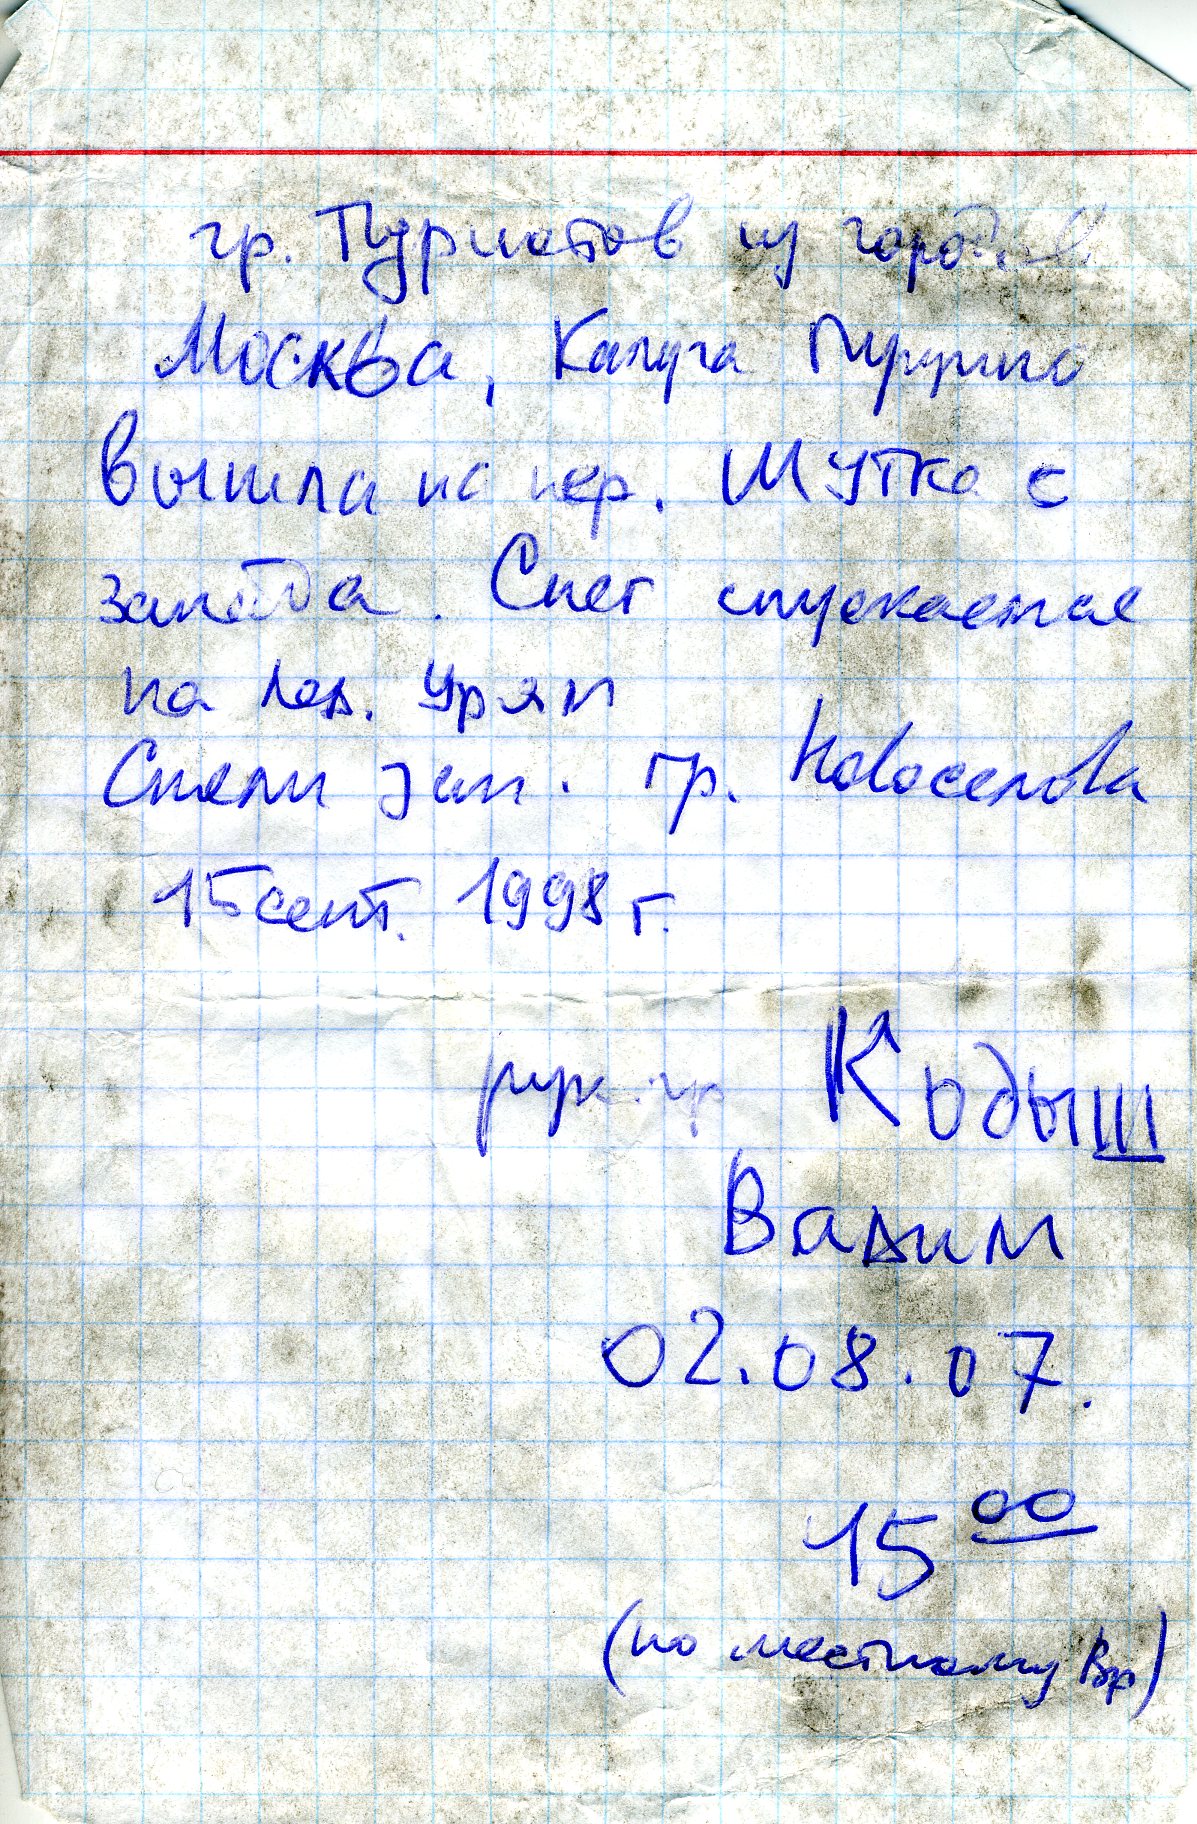 гр. Туристов из городов
Москва, Калуга Пущино
вышла на пер. Шутка с
запада. Снег спускаемся
на лед. Урям
Сняли зап. гр. Новоселова
15 сент. 1998 г.
рук. гр Кодыш
Вадим
02.08.07.
15 00
(по местному вр)